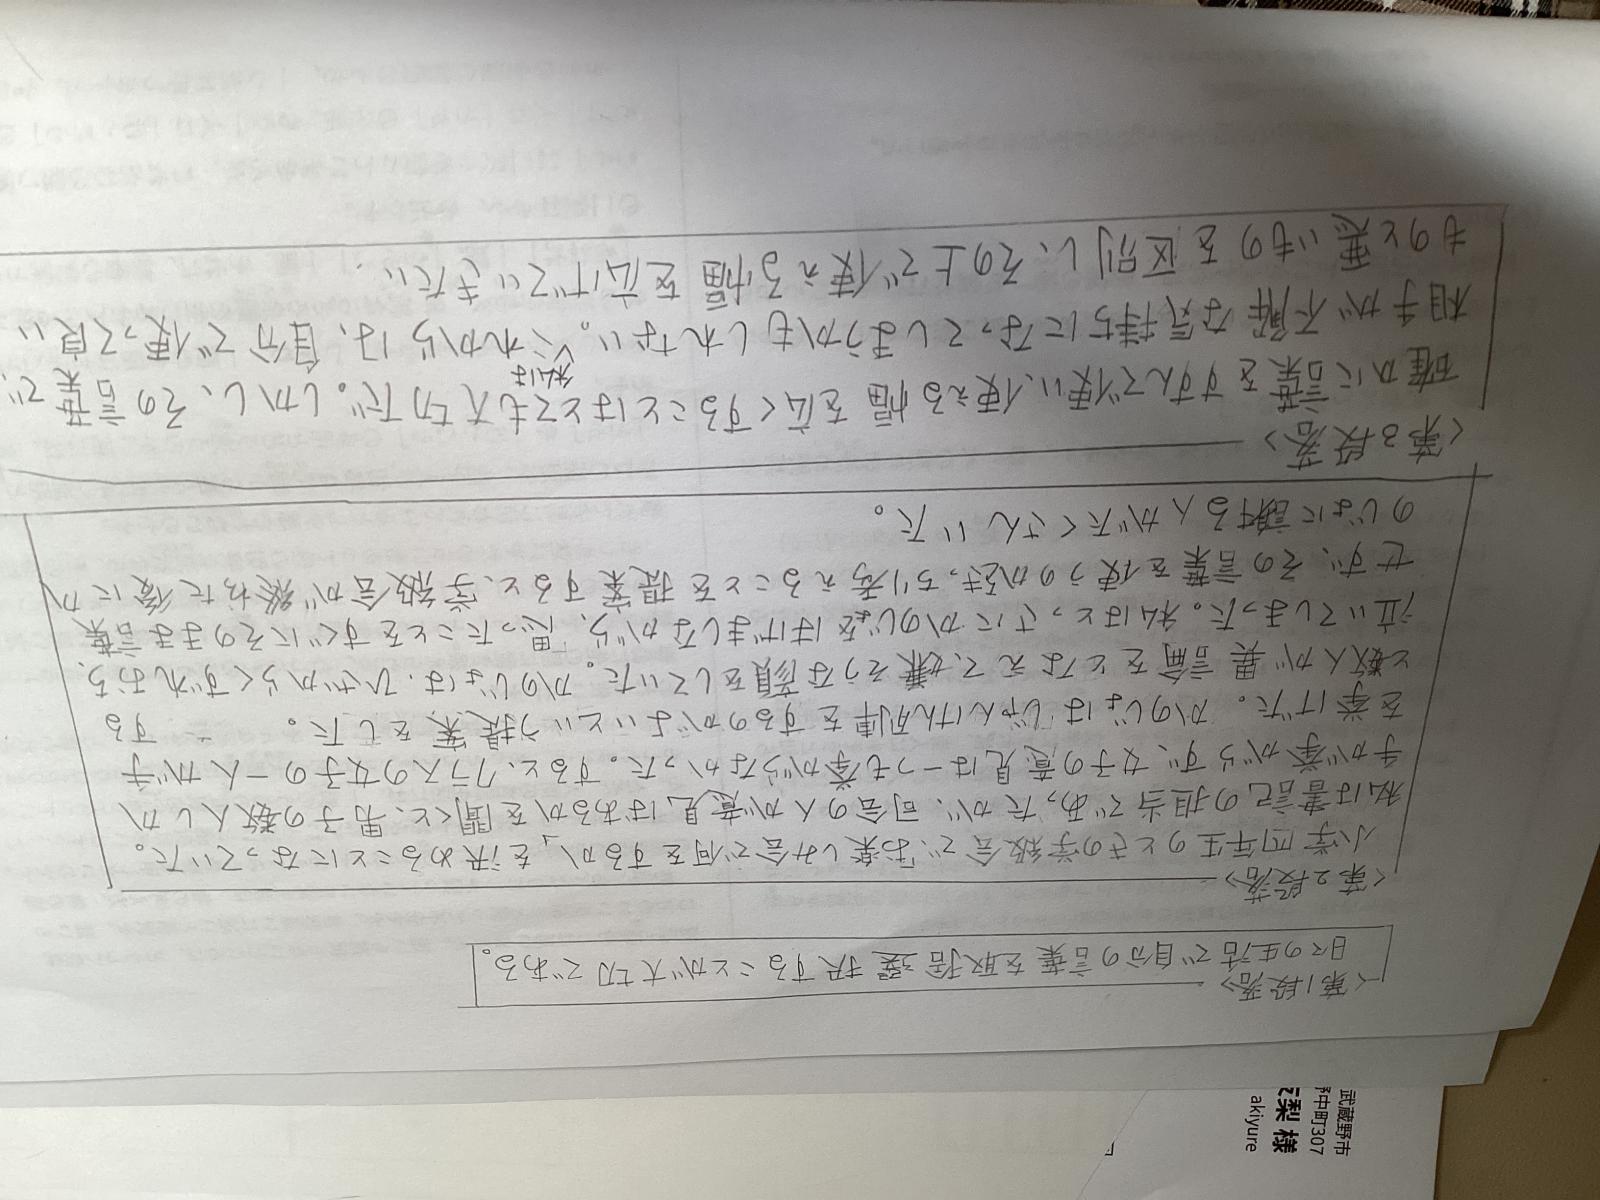 <第1段落>
日々の生活で自分の言葉を取捨選択することが大切である。
<第2段落>
小学四年生のときの学級会で、「お楽しみ会で何をするか」を決めることになっていた。
私は書記の担当であったが、司会の人が意見はあるかを聞くと、男子の数人しか
手が挙がらず、女子の意見は一つも挙がらなかった。すると、クラスの女子の一人が手
を挙げた。かのじょはじゃんけん列車をするのがよいという提案をした。する
と数人が異論をとなえて、嫌そうな顔をしていた。かのじょは、ひざからくずれおち、
泣いてしまった。私はとっさにかのじょをはげましながら、「思ったことをすぐにそのまま言葉
せず、その言葉を使うのか立ち考えることを提案すると、学級会が終わった後にか
のじょに謝る人がたくさんいた。
<第3段落>
確かに言葉をすすんで使い、使える幅を広くすることはとても大切だ。しかし、その言葉で、
相手が不解な気持ちになってしまうかもしれない。これからは、自分で使って良い
私は
ものと悪いものを区別し、その上で使える幅を広げていきたい。
武蔵野市
中町307
梨 様
akiyure